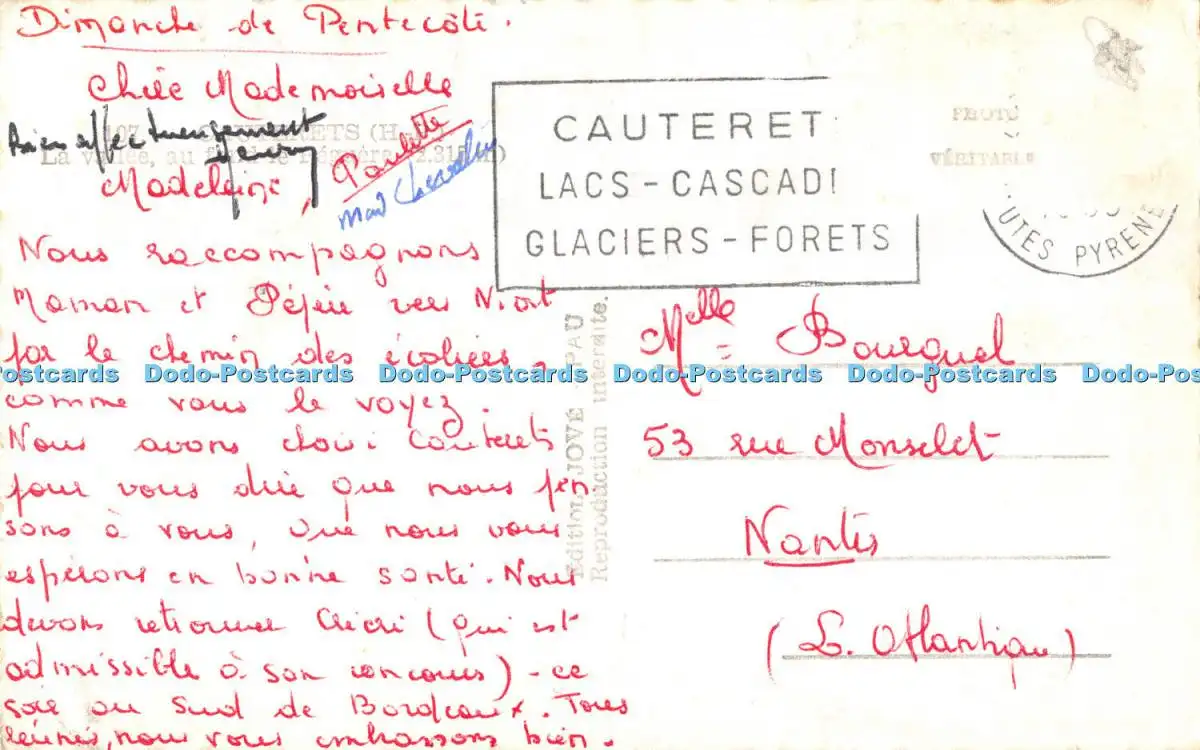 Dimanche de Pentecôte.
Chère Mademoiselle
Bien affectueusement
107 CAUTERETS (H.-P.)
La vallée, au fond le Péguère (2.315 m)
Madeleine, Paulette
Nous raccompagnons
Maman et Pépère vers Niort
par le chemin des écoliers,
comme vous le voyez.
Nous avons choisi Cauterets
pour vous dire que nous pen-
sons à vous, que nous vous
espérons en bonne santé. Nous
devons retrouver Cricri (qui est
admissible à son concours) - ce
soir au Sud de Bordeaux. Tous
réunis, nous vous embrassons bien.
CAUTERET
LACS - CASCADI
GLACIERS - FORETS
PHOTO
VÉRITABLE
UTES PYRENE
Edition JOVÉ PAU
Reproduction interdite.
Melle Bourguel
53 rue Monselet
Nantes
(L. Atlantique)
Dodo-Postcards Dodo-Postcards Dodo-Postcards Dodo-Postcards Dodo-Postcards Dodo-Postcards